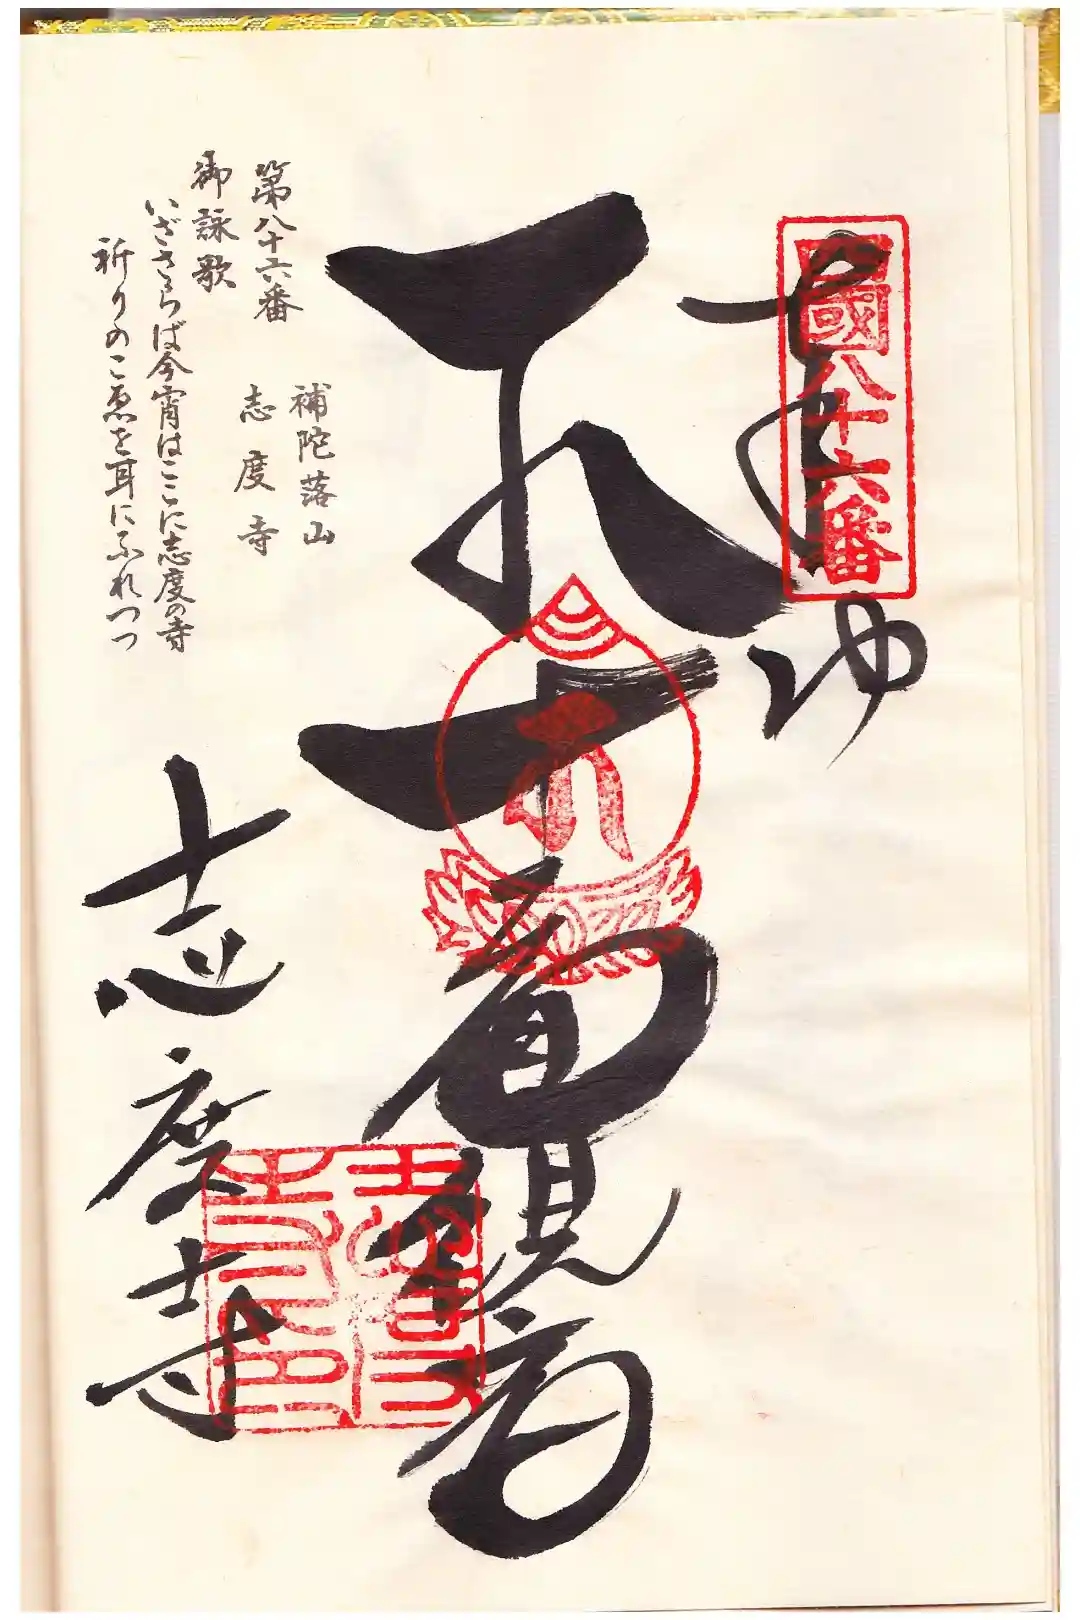 奉納
四國八十六番
十一面観音
志度寺
補陀落山
志度寺
第八十六番
御詠歌
いざさらば今宵はここに志度の寺
祈りのこゑを耳にふれつつ